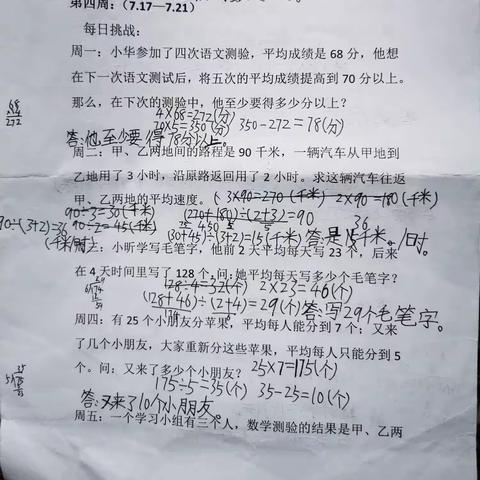 第四周：（7.17—7.21）
每日挑战：
周一：小华参加了四次语文测验，平均成绩是 68 分，他想
在下一次语文测试后，将五次的平均成绩提高到 70 分以上。
那么，在下次的测验中，他至少要得多少分以上？
68
×4
272
4×68=272(分)
70×5=350(分) 350-272=78(分)
答：他至少要得78分以上。
周二：甲、乙两地间的路程是 90 千米，一辆汽车从甲地到
乙地用了 3 小时，沿原路返回用了 2 小时。求这辆汽车往返
甲、乙两地的平均速度。 3×90=270(千米) 2×90=180(千米)
90÷3=30(千米) (270+180)÷(2+3)=90
90÷(3+2)=36 90÷2=45(千米) 450 5 36
(千米/时) (30+45)÷(3+2)=15(千米) 答：是15千米。/时。
周三：小昕学写毛笔字，他前 2 天平均每天写 23 个，后来
在 4 天时间里写了 128 个，问：她平均每天写多少个毛笔字？
128÷4=32(个) 2×23=46(个)
(128+46)÷(2+4)=29(个) 答：写29个毛笔字。
174 6
周四：有 25 个小朋友分苹果，平均每人能分到 7 个；又来
了几个小朋友，大家重新分这些苹果，平均每人只能分到 5
个。问：又来了多少个小朋友？ 25×7=175(个)
175÷5=35(个) 35-25=10(个)
答：又来了10个小朋友。
周五：一个学习小组有三个人，数学测验的结果是甲、乙两